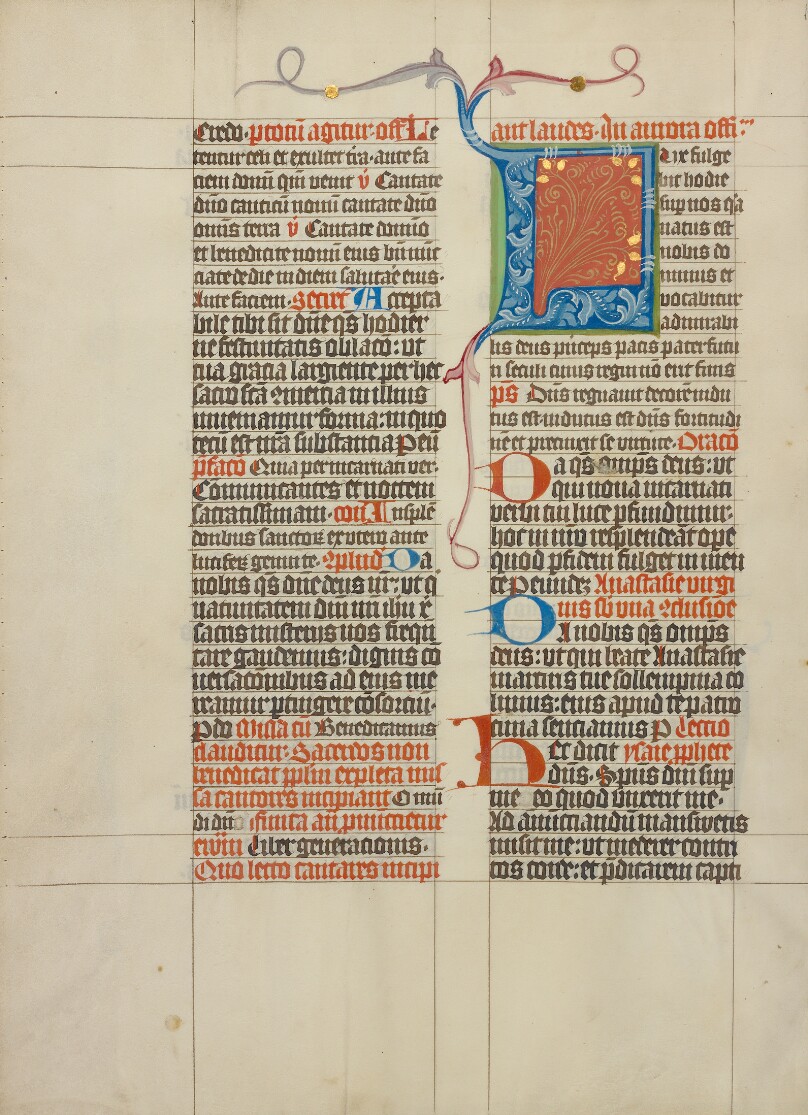 Credo. ptotū agitur. off. Le
tentur celi et exultet t̄ra. ante fa
ciem domī qm̄ venit v̄ Cantate
dn̄o canticū nouū cantate dn̄o
omīs terra v̄ Cantate domīo
et benedicite nomī eius bn̄ nūt
ciate de die in diem salutāe eius.
Ante faciem. Secret̄ Accepta
bile tibi sit dn̄e qs̄ hodier
ne festiuitatis oblacō: vt
tua gracia largiente per hec
sacro sc̄a ↄmercia in illius
inueniamur forma: in quo
tecū est nr̄a substantia Peū
p̄facō Quia per incarnati ver.
Cōmunicantes et noctem
sacratissimam. com̄ In splē
doribus sanctoꝝ ex vtero ante
luciferꝫ genui te. ↄplend̄ Da
nobis qs̄ dn̄e deus nr̄: vt q̄
natiuitatem dn̄i nr̄i ih̄u x̄
sacris misterijs nos freqū
tare gaudemus: dignis cō
uersacōnibus ad eius me
reamur ptingere cōsorciū.
P do Missa cū Benedicamus
clauditur. Sacerdos non
benedicat pp̄lm expleta mis
sa cantores incipiant O mū
di dn̄o finita an̄ pnūccietur
ewm̄ Liber generacionis.
Quo lecto cantares incipi
ant laudes. In aurora offi:
Lux fulge
bit hodie
sup nos q̄a
natus est
nobis do
minus et
vocabitur
admirabi
lis deus pn̄ceps pacis pater futu
ri seculi cuius regni nō erit finis
ps Dn̄s regnauit decorē indu
tus est. indutus est dn̄s fortitudi
nē et precinxit se virtute. Oracō
Da qs̄ omp̄s deus: vt
qui noua incarnati
verbi tui luce pfundimur.
hoc in nr̄o resplendeāt ope
quod p fidem fulget in men
te P eundeꝫ Anastasie virgi
nis sb̄ vna ↄclusiōe
Da nobis qs̄ omp̄s
deus: vt qui beate Anastasie
martiris tue sollempnia co
limus: eius apud te patro
cinia senciamus P Lectio
Hec dicit ysaie pphete
dn̄s. Spūs dn̄i sup
me eo quod vnxerit me.
Ad anūciandū mansuetis
misit me: vt mederer contri
tos corde: et p̄dicarem capti